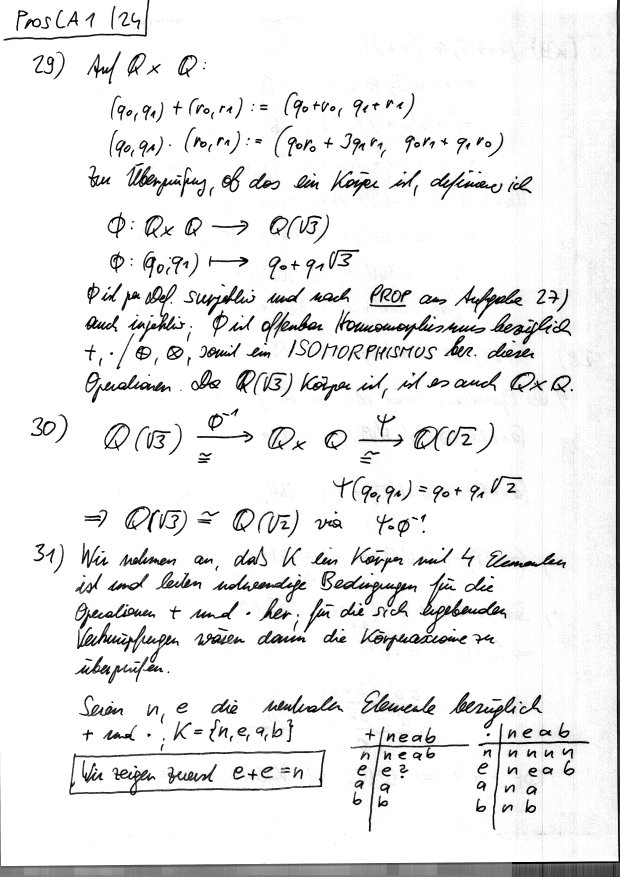 Pros LA 1 /24
29) Auf Q × Q:
(q₀,q₁) + (r₀,r₁) := (q₀+r₀, q₁+r₁)
(q₀,q₁) · (r₀,r₁) := (q₀r₀ + 3q₁r₁, q₀r₁ + q₁r₀)
Zur Überprüfung, ob das ein Körper ist, definiere ich
Φ: Q × Q ⟶ Q(√3)
Φ: (q₀,q₁) ⟼ q₀ + q₁√3
Φ ist per Def. surjektiv und nach PROP aus Aufgabe 27)
auch injektiv; Φ ist offenbar Homomorphismus bezüglich
+, · / ⊕, ⊗, somit ein ISOMORPHISMUS bez. dieser
Operationen. Da Q(√3) Körper ist, ist es auch Q × Q.
30) Q(√3) Φ⁻¹ ⟶ ≅ Q × Q Ψ ⟶ ≅ Q(√2)
Ψ(q₀,q₁) = q₀ + q₁√2
⟹ Q(√3) ≅ Q(√2) via Ψ∘Φ⁻¹.
31) Wir nehmen an, daß K ein Körper mit 4 Elementen
ist und leiten notwendige Bedingungen für die
Operationen + und · her; für die sich ergebenden
Verknüpfungen wären dann die Körperaxiome zu
überprüfen.
Seien n, e die neutralen Elemente bezüglich
+ und ·, K = {n,e,a,b}
Wir zeigen zuerst e+e = n
+ | n e a b
n | n e a b
e | e ?
a | a
b | b
· | n e a b
n | n n n n
e | n e a b
a | n a
b | n b